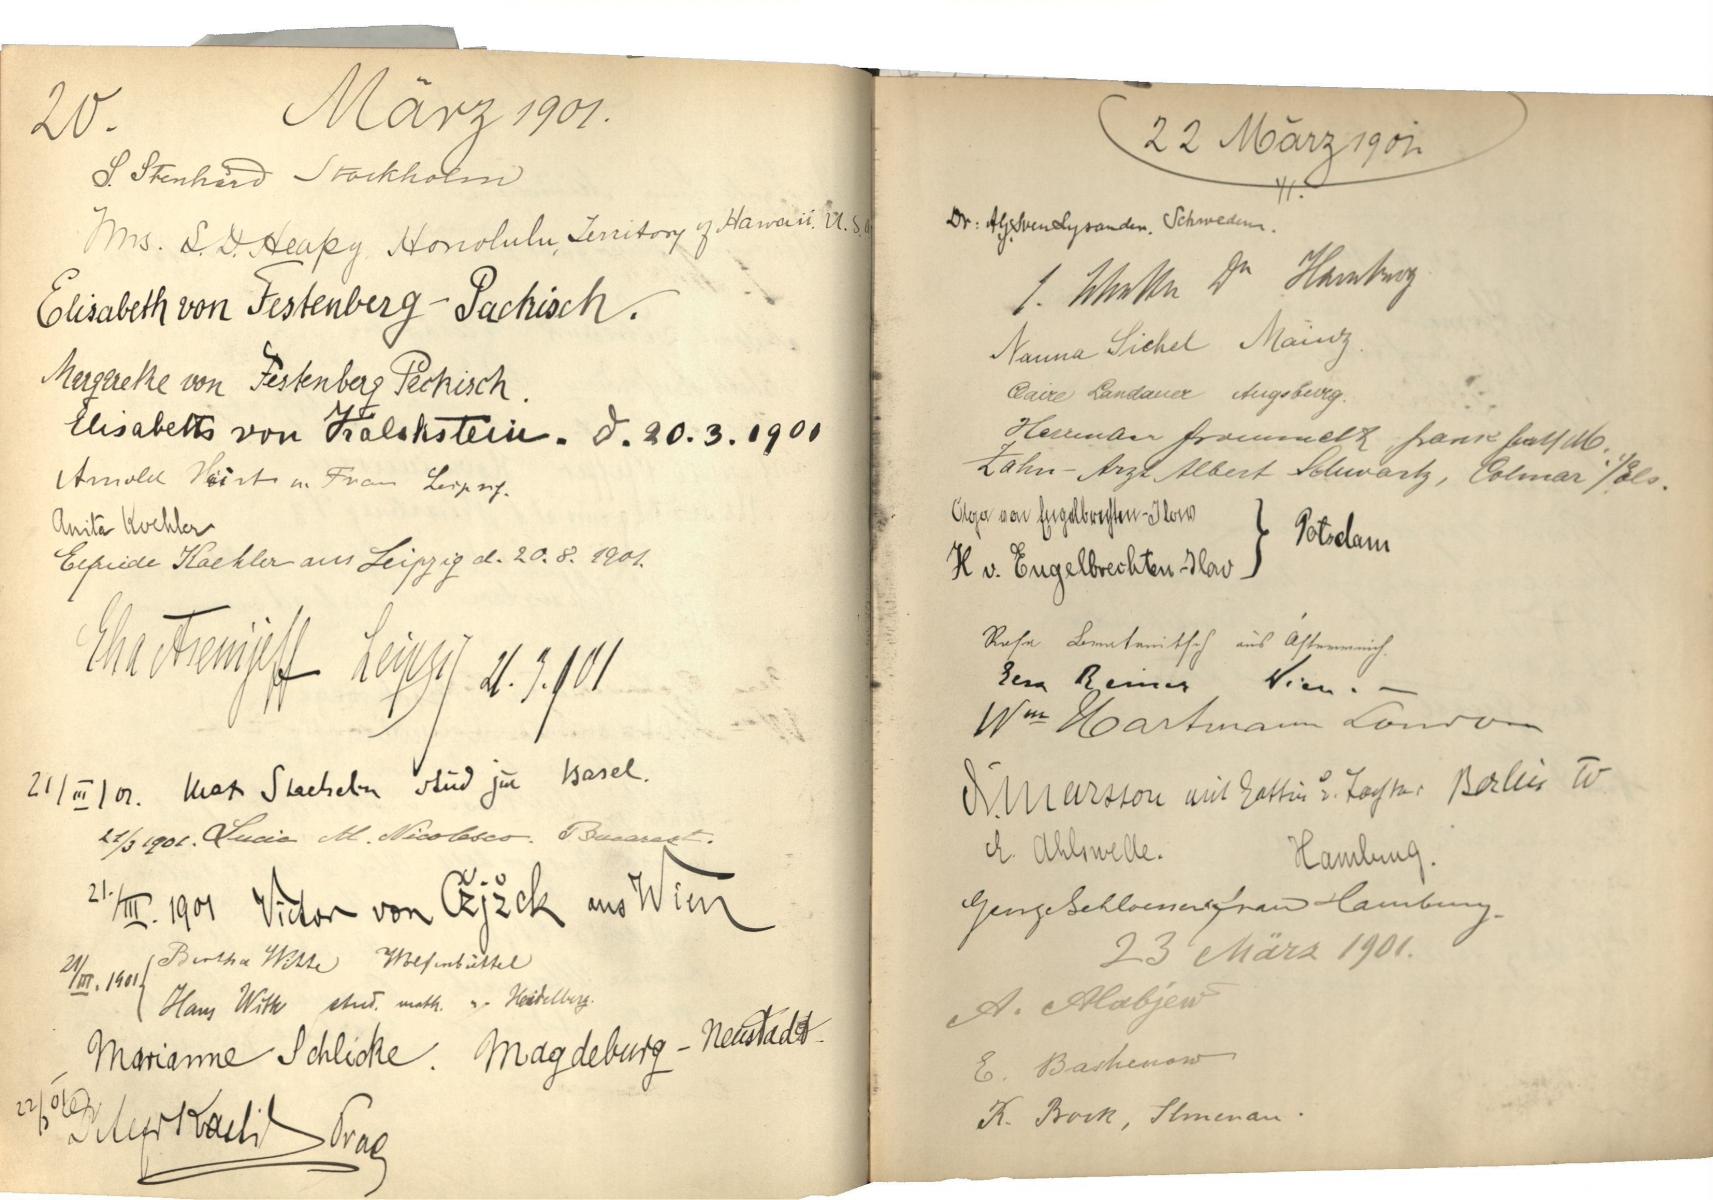 20. März 1901.
S. Stenhård Stockholm
Mrs. S. D. Heapy, Honolulu, Territory of Hawaii. U.S.
Elisabeth von Festenberg-Packisch.
Margarethe von Festenberg Packisch.
Elisabeth von Kalckstein. d. 20.3.1901
Arnold Frau Leipzig.
Anita Koehler
Elfriede Koehler aus Leipzig d. 20.3.1901.
Elsa Asenijeff Leipzig 21.3.901
21/III/01. Max Staehelin stud jur Basel.
21/3 1901. Lucia M. Nicolesco. Bucarest.
21./III. 1901 Victor von aus Wien
21/III. 1901 Bertha Witte Wolfenbüttel
Hans Witte stud. math. Heidelberg.
Marianne Schlicke. Magdeburg-Neustadt
22/3 01 Prag
22 März 1901.
Dr: Sven Lysander. Schweden.
Dr Hamburg
Nanna Sichel Mainz.
Claire Landauer Augsburg.
Herrman Frankfurt M.
Zahn-Arzt Albert Schwartz, Colmar i/Els.
Olga von Engelbrechten-Ilow
H v. Engelbrechten-Ilow } Potsdam
aus Österreich.
Reiner Wien.
Wm Hartmann London
Marsson mit Gattin u. Tochter Berlin W
E. Ahlswede. Hamburg.
George Schloesser Frau Hamburg.
23 März 1901.
A. Alabjew
E. Bashenow
K. Bock, Ilmenau.